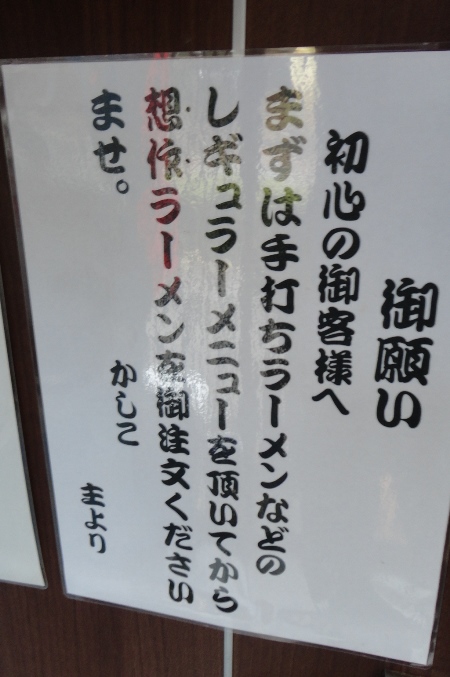 御願い
初心の御客様へ
まずは手打ちラーメンなどの
レギュラーメニューを頂いてから
想作ラーメンを御注文ください
ませ。
かしこ
主より